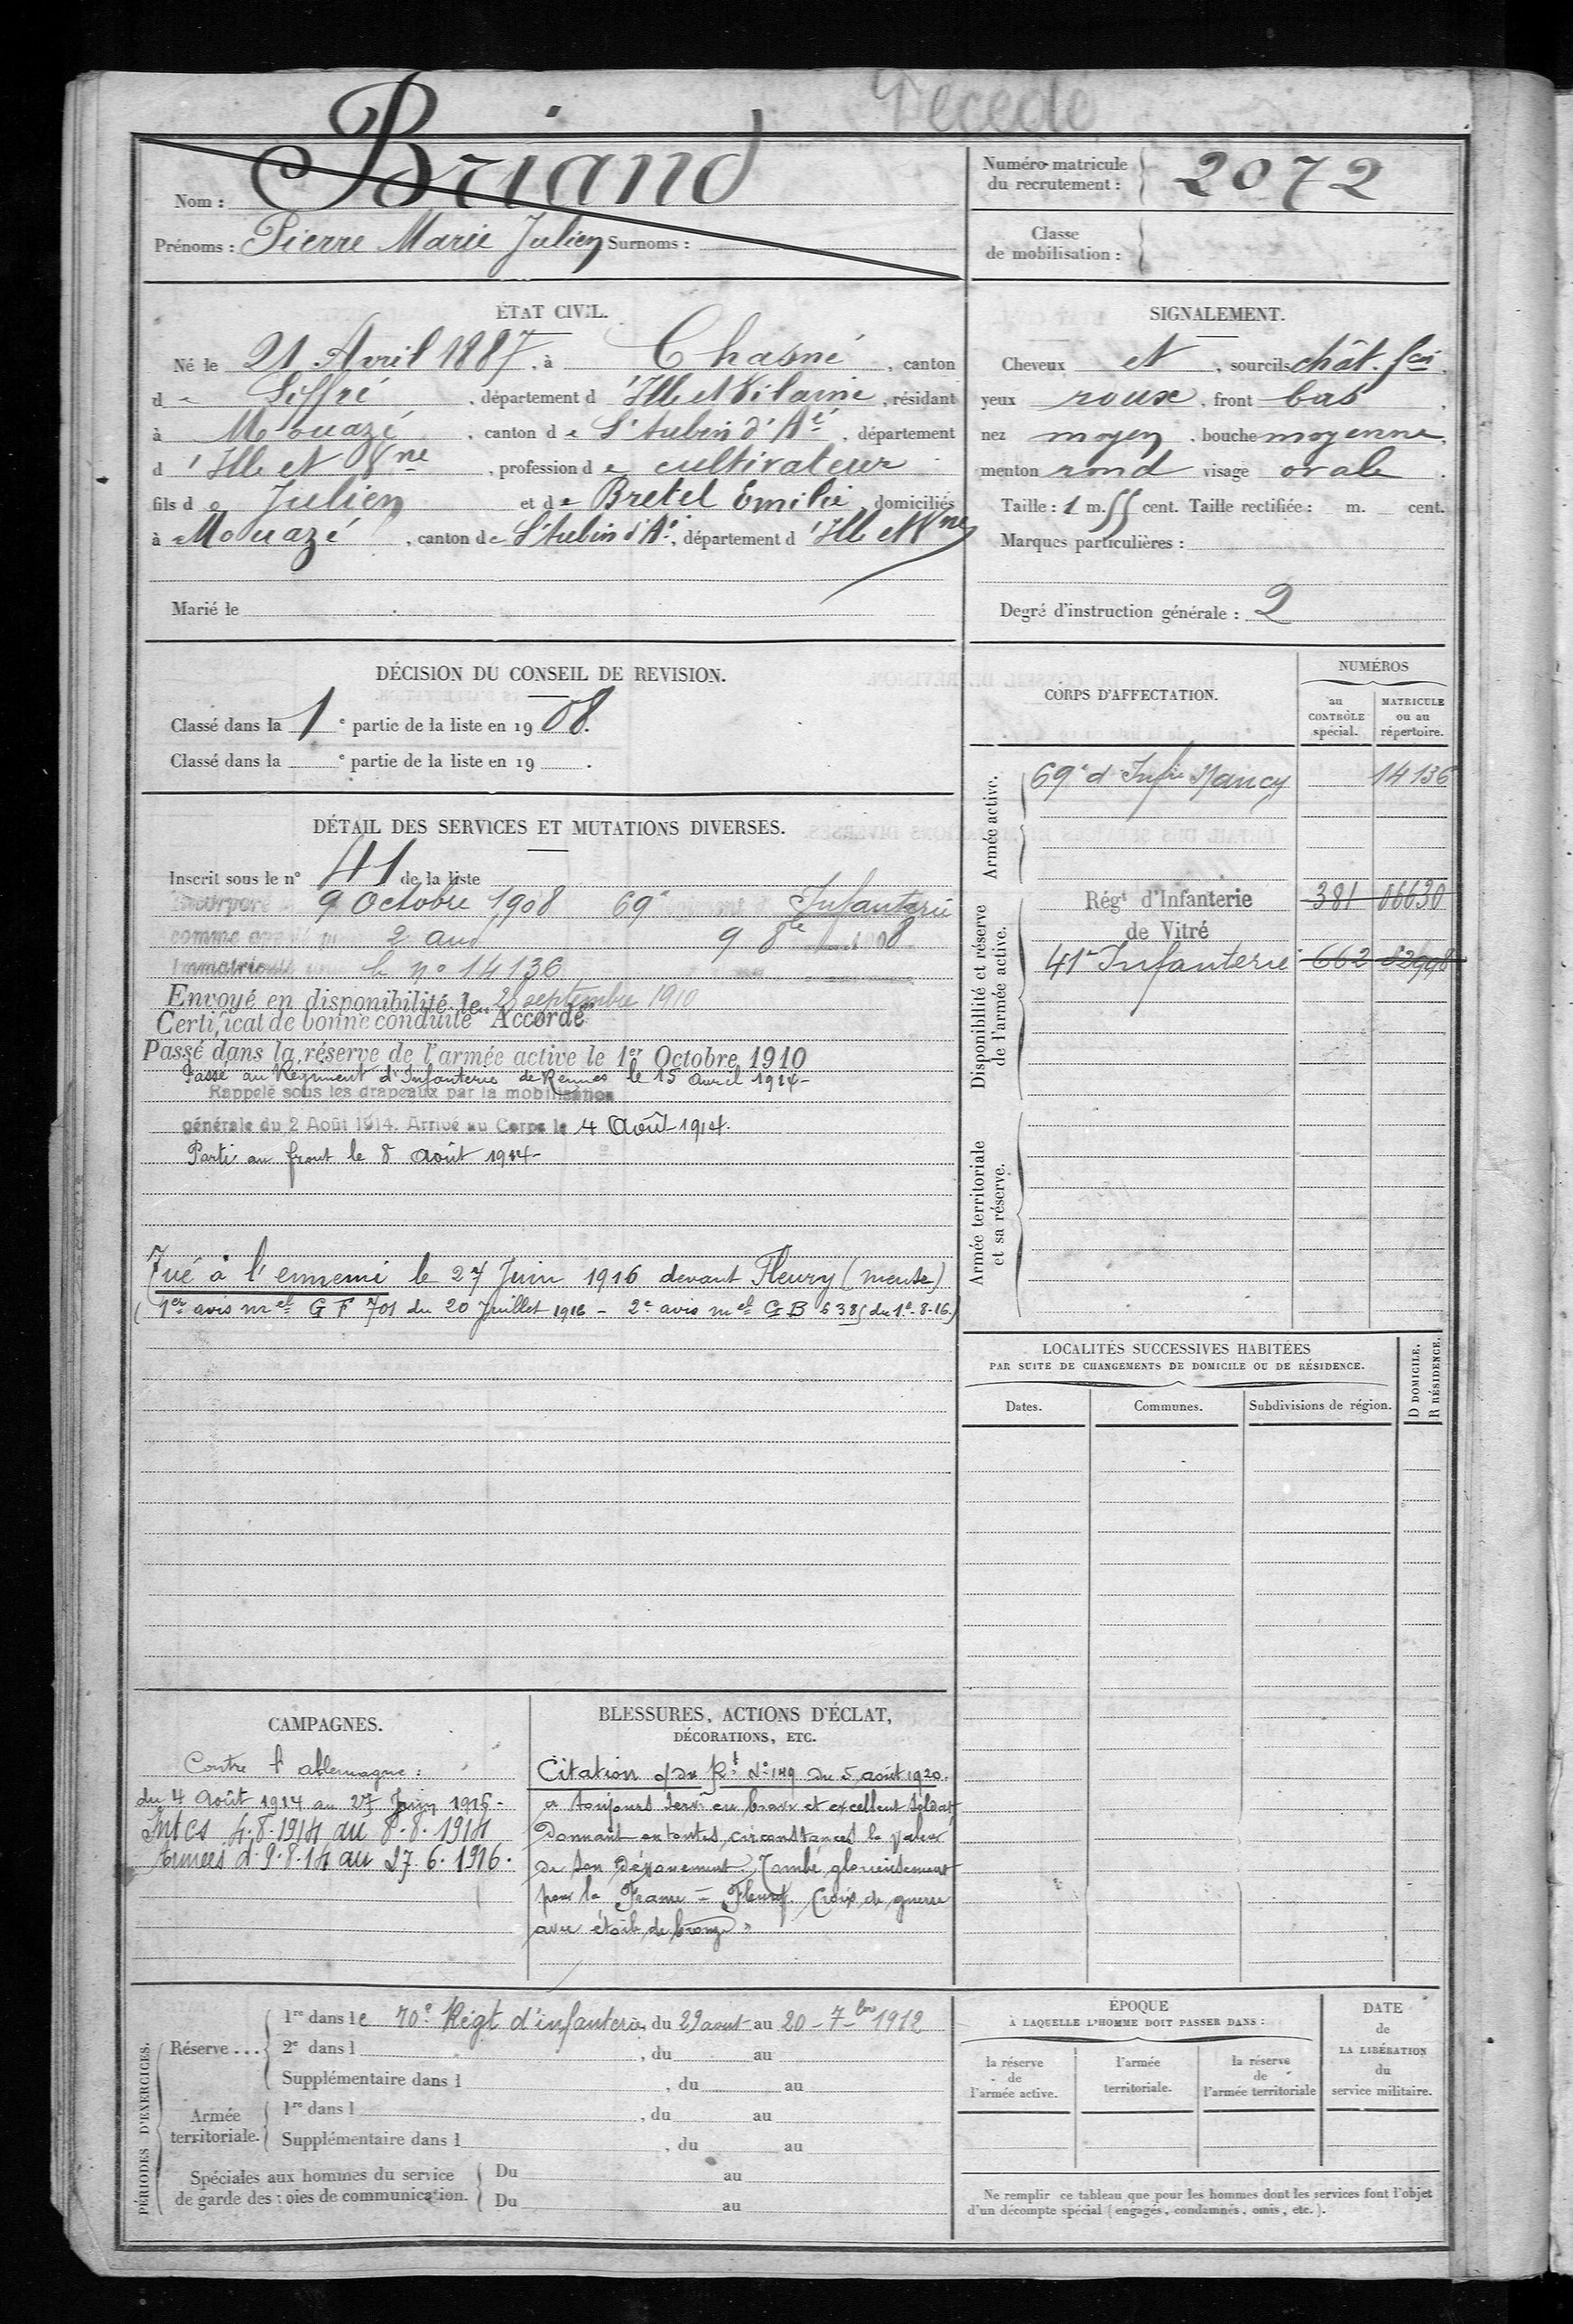 Décédé
Nom : Briand
Prénoms : Pierre Marie Julien Surnoms :
Numéro matricule du recrutement : 2072
Classe de mobilisation :
ÉTAT CIVIL.
Né le 21 Avril 1887, à Chasné, canton
de Liffré, département d'Ille et Vilaine, résidant
à Mouazé, canton de St Aubin d'Aé, département
d'Ille et Vne, profession de cultivateur
fils de Julien et de Bretel Emilie, domiciliés
à Mouazé, canton de St Aubin d'A., département d'Ille et Vne
Marié le
SIGNALEMENT.
Cheveux et, sourcils chât. fcé,
yeux roux, front bas,
nez moyen, bouche moyenne,
menton rond visage ovale.
Taille : 1 m. 55 cent. Taille rectifiée : m. cent.
Marques particulières :
Degré d'instruction générale : 2
DÉCISION DU CONSEIL DE REVISION.
Classé dans la 1e partie de la liste en 1908.
Classé dans la e partie de la liste en 19 .
DÉTAIL DES SERVICES ET MUTATIONS DIVERSES.
Inscrit sous le n° 41 de la liste
Incorporé 9 Octobre 1908 69e Infanterie
comme 2 ans 9 8bre 1908
Immatriculé le n° 14136
Envoyé en disponibilité le 25 septembre 1910
Certificat de bonne conduite "Accordé"
Passé dans la réserve de l'armée active le 1er Octobre 1910
Passé au Régiment d'Infanterie de Rennes le 15 avril 1914-
Rappelé sous les drapeaux par la mobilisation
générale du 2 Août 1914. Arrivé au Corps le 4 Août 1914.
Parti au front le 8 Août 1914-
Tué à l'ennemi le 27 Juin 1916 devant Fleury (Meuse)
(1er avis mel G F 701 du 20 Juillet 1916 - 2e avis mel GB 6385 du 1er-8-16.)
CORPS D'AFFECTATION.
NUMÉROS
au CONTRÔLE spécial.
MATRICULE ou au répertoire.
Armée active.
69e d'Infie Nancy 14136
Disponibilité et réserve de l'armée active.
Régt d'Infanterie 381 06630
de Vitré
41e Infanterie 662 02998
Armée territoriale et sa réserve.
LOCALITÉS SUCCESSIVES HABITÉES
PAR SUITE DE CHANGEMENTS DE DOMICILE OU DE RÉSIDENCE.
Dates.
Communes.
Subdivisions de région.
D DOMICILE.
R RÉSIDENCE.
CAMPAGNES.
Contre l'allemagne :
du 4 Août 1914 au 27 Juin 1916-
Intes 4.8.1914 au 8.8.1914
Armées d. 9.8.14 au 27.6.1916.
BLESSURES, ACTIONS D'ÉCLAT,
DÉCORATIONS, ETC.
Citation o/du Rt N° 149 du 5 août 1920.
a toujours servi en brave et excellent soldat
donnant en toutes circonstances la valeur
de son dévouement. Tombé glorieusement
pour la France - Fleury. Croix de guerre
avec étoile de bronze"
PÉRIODES D'EXERCICES.
Réserve ...
1re dans le 70e Régt d'infanterie, du 29 aout au 20-7bre 1912
2e dans l , du au
Supplémentaire dans l , du au
Armée territoriale.
1re dans l , du au
Supplémentaire dans l , du au
Spéciales aux hommes du service
de garde des voies de communication.
Du au
Du au
ÉPOQUE
À LAQUELLE L'HOMME DOIT PASSER DANS :
la réserve de l'armée active.
l'armée territoriale.
la réserve de l'armée territoriale
DATE de LA LIBÉRATION du service militaire.
Ne remplir ce tableau que pour les hommes dont les services font l'objet
d'un décompte spécial (engagés, condamnés, omis, etc.).